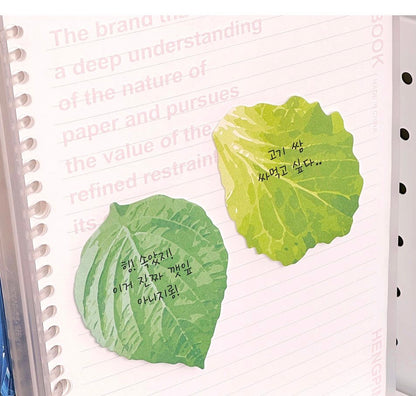 The brand
a deep understanding
of the nature of
paper and pursues
the value of the
refined restraint
its
BOOK
고기 쌈
싸먹고 싶다..
힝! 속았지!
이거 진짜 깻잎
아니지롱!